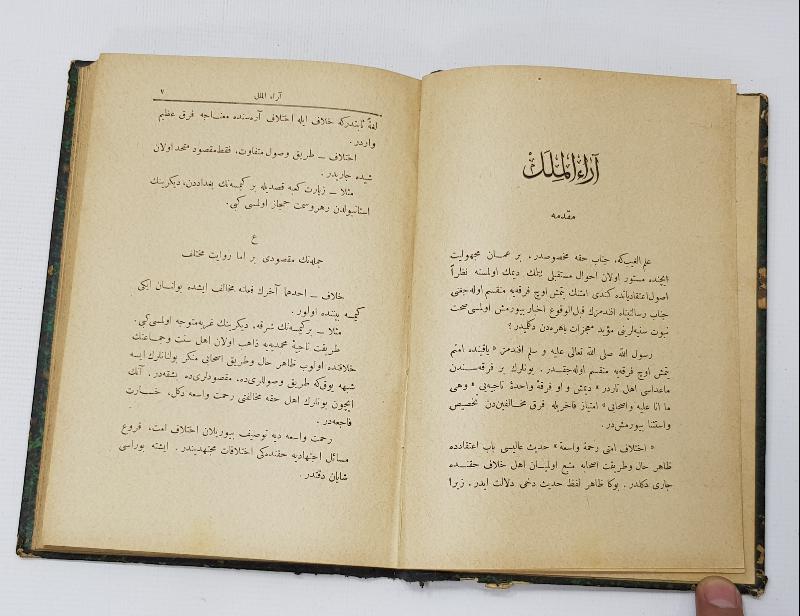 آراء الملل
مقدمه
علم الغیب که، جناب حقه مخصوصدر. بر عمان مجهولیت
ایچنده مستور اولان احوال مستقبلی بیلك دیمك اولسنه نظراً
اصول اعتقادیاتده کندی امتنك یتمش اوچ فرقه‌یه منقسم اوله‌جغنی
جناب رسالتپناه افندمزك قبل الوقوع اخبار بیورمش اولمسی صحت
نبوت سنیه‌لرینی مؤید معجزات باهره‌دن دکلیدر؟
رسول الله صلی الله تعالی علیه و سلم افندمز « یاقینده امتم
یتمش اوچ فرقه‌یه منقسم اوله‌جقدر. بونلرك بر فرقه‌سندن
ماعداسی اهل ناردر » دیمش و او فرقۀ واحدۀ ناجیه‌یی « وهی
ما انا علیه واصحابی » امتیاز فاخریله فرق مخالفین‌دن تخصیص
واستثنا بیورمش‌در.
« اختلاف امتی رحمة واسعة » حدیث عالیسی باب اعتقادده
ظاهر حال وطریقت اصحابه متبع اولمیان اهل خلاف حقنده
جاری دکلدر. بوکا ظاهر لفظ حدیث دخی دلالت ایدر. زیرا
آراء الملل
٧
لغةً ثابتدرکه خلاف ایله اختلاف آره‌سنده معناجه فرق عظیم
واردر.
اختلاف ـ طریق وصول متفاوت، فقط مقصود متحد اولان
شیده جاریدر.
مثلا ـ زیارت کعبه قصدیله بر کیمسه‌نك بغداددن، دیکرینك
استانبولدن رهرو سمت حجاز اولمسی کبی.
ع
جمله‌نك مقصودی بر اما روایت مختلف
خلاف ـ احدهما آخرك فعلنه مخالف ایشده بولنان ایکی
کیمسه بیننده اولور.
مثلا ـ بر کیمسه‌نك شرقه، دیکرینك غربه متوجه اولمسی کبی.
طریقت ناجیۀ محمدیه‌یه ذاهب اولان اهل سنت وجماعتك
خلافنده اولوب ظاهر حال وطریق اصحابی منکر بولنانلرك ایسه
شبهه یوق که طریق وصوللری‌ده، مقصودلری‌ده بشقه‌در. آنك
ایچون بونلرك اهل حقه مخالفتی رحمت واسعه دکل، خسارت
فاجعه‌در.
رحمت واسعه دیه توصیف بیوریلان اختلاف امت، فروع
مسائل اجتهادیه حقنده‌کی اختلافات مجتهدیندر. ایشته بوراسی
شایان دقتدر.